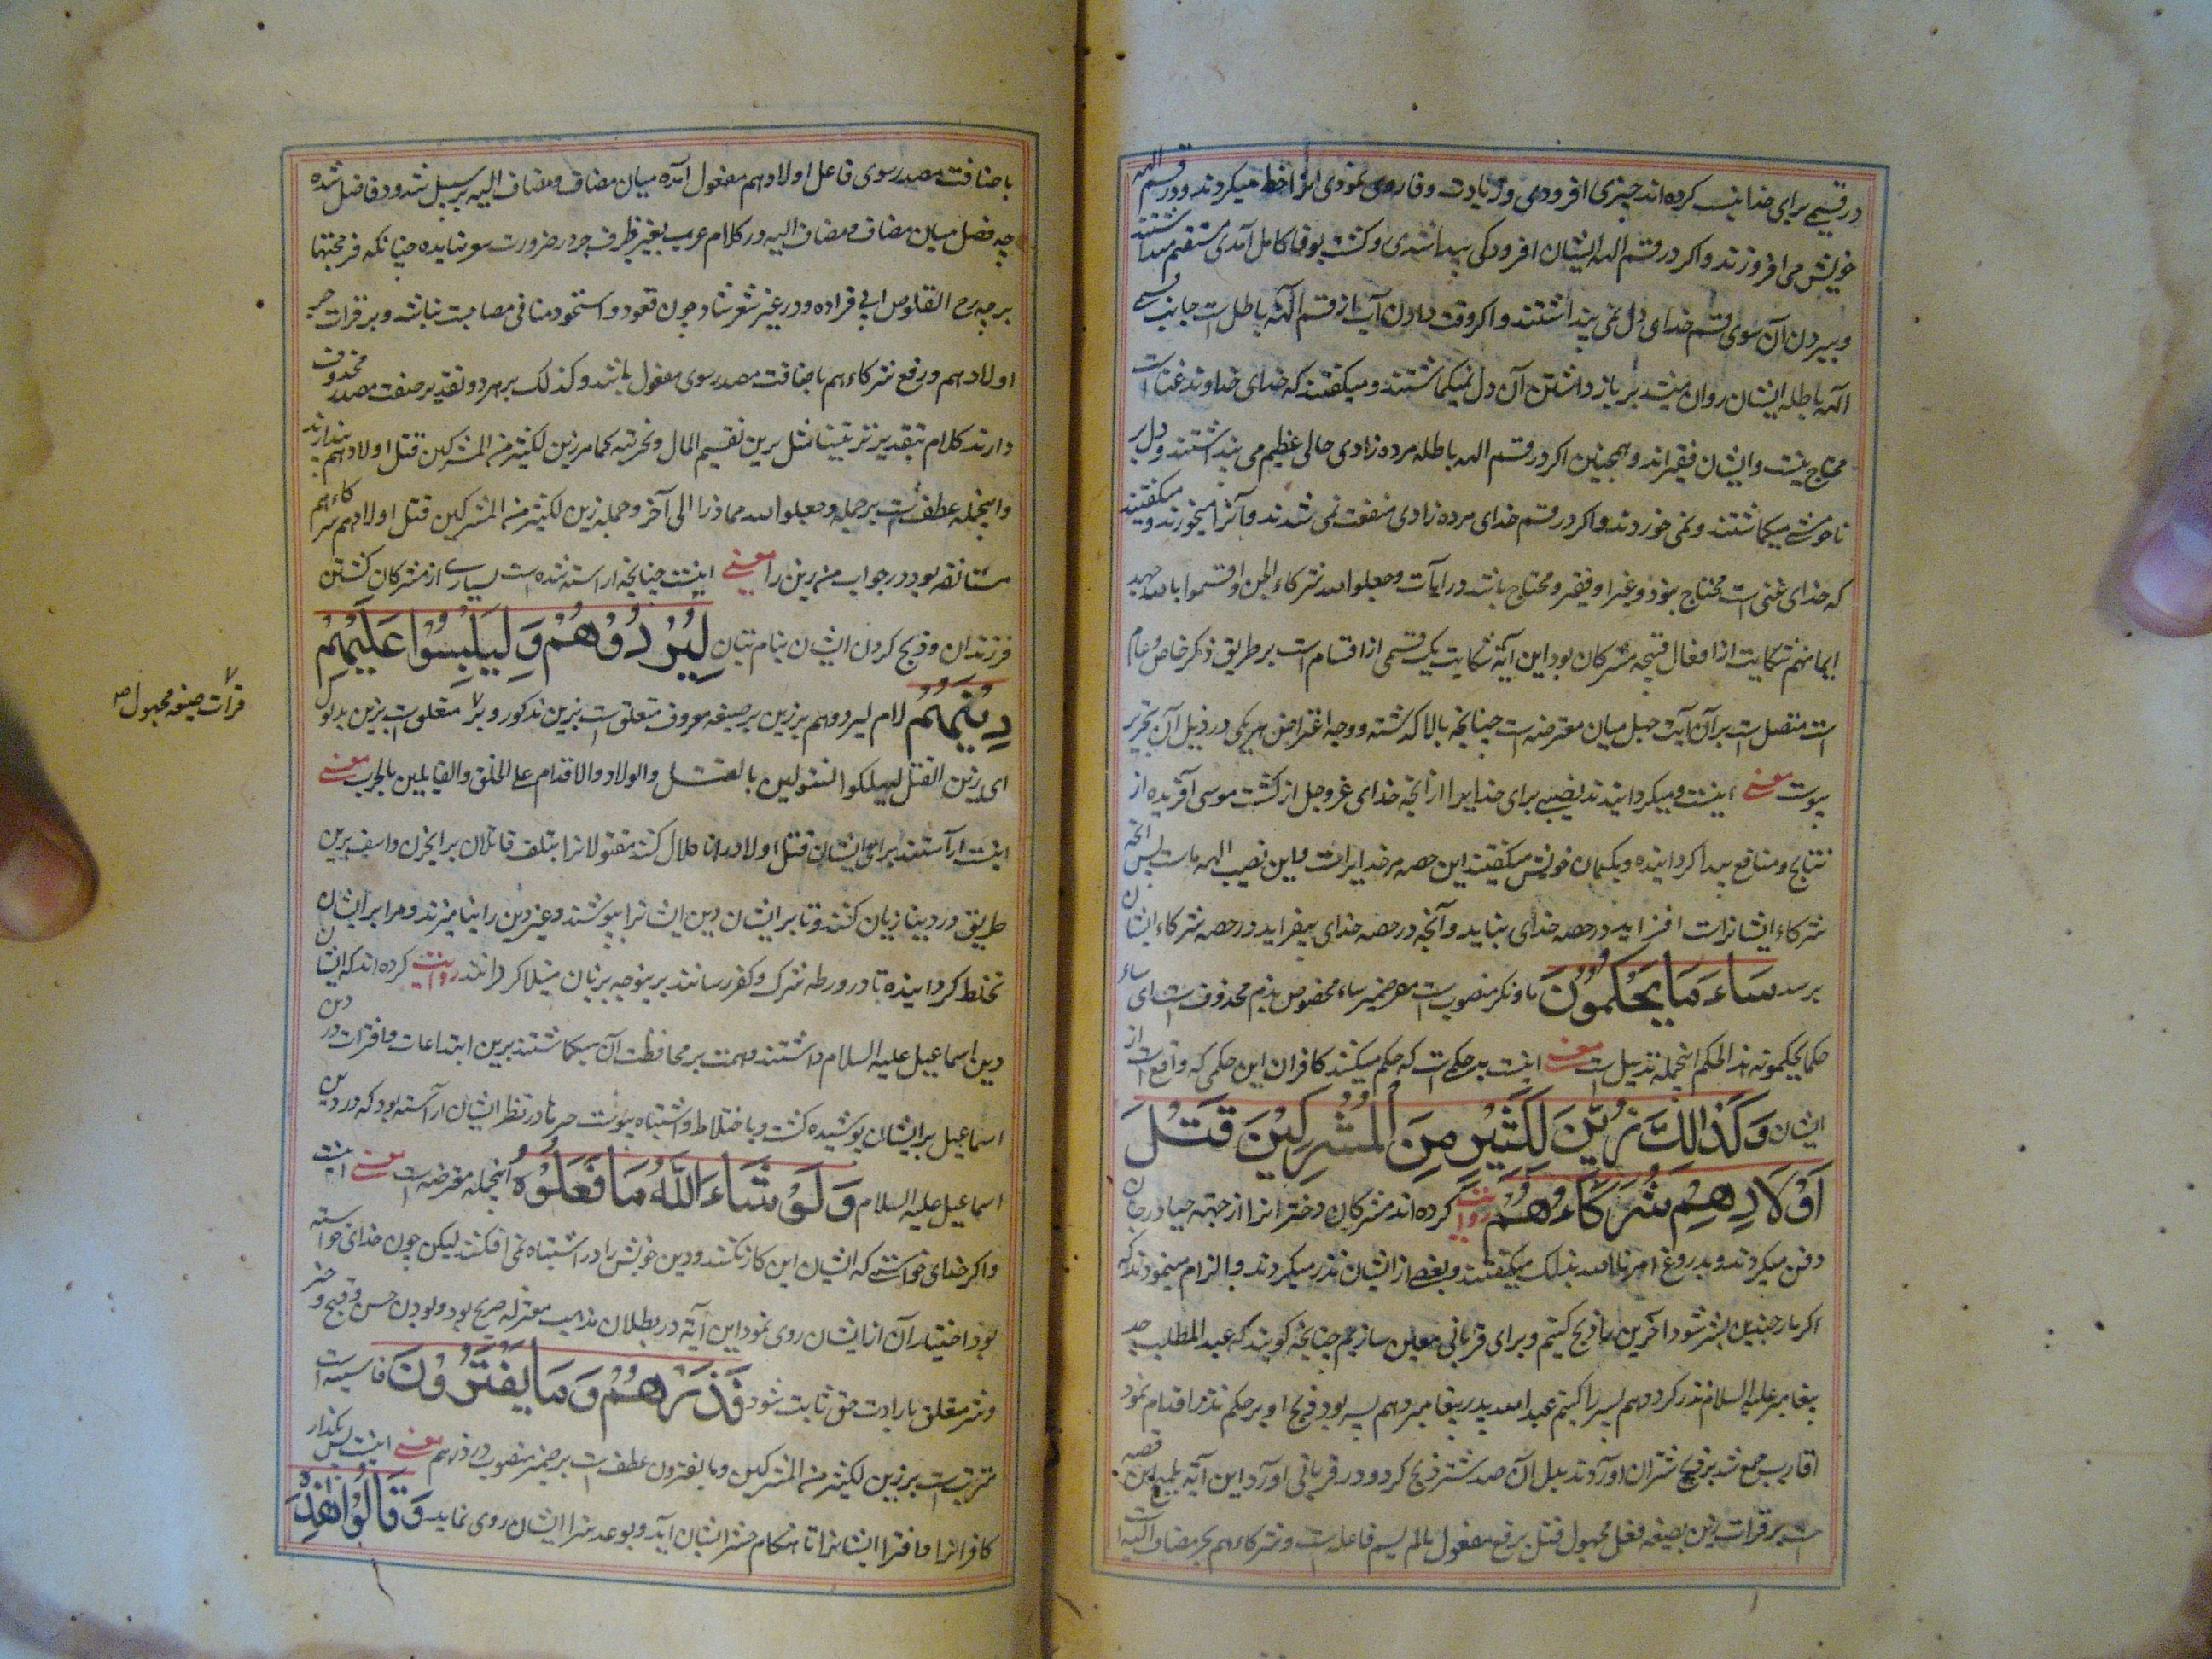 در قسمی برای خدا نسبت کرده اند چیزی افزودی و زیادت وفا روی نمودی آنرا خط میکردند و در قسم الهه
خویش می افزودند و اکر در قسم الهه ایشان افزودکی پیدا شدی و کشت بوفا کامل آمدی مستقیم میداشتند
و ببردن آن سوی قسم خدای دل نمی پنداشتند و اکر وقت دادن آب از قسم آلهه باطل است جانب
الهه باطله ایشان روان میشد بر باز داشتن آن دل نمیکماشتند و میکفتند که خدای خداوند غنا است
محتاج نیست و ایشان فقیراند و همچنین اکر در قسم الهه باطله مرده زادی حالی عظیم می پنداشتند و دل بر
ناخوشی میکماشتند و نمی خوردند و اکر در قسم خدای مرده زادی منفعت نمی شدند و آنرا میخورند و میکفتند
که خدای غنی است محتاج نبود و غیر او فقیر و محتاج باشد در آیات وجعلوا لله شرکاء الجن و اقسموا بالله جهد
ایمانهم شکایت از افعال قبیحه مشرکان بود این آیة شکایت یک قسمی از اقسام است بر طریق ذکر خاص و عام
است متصل است بر آن آیت جمل میان معترضه است چنانچه بالا کذشته و وجه اعتراض هر یکی در ذیل آن بتحریر
پیوست معنی اینست و میکردانیدند نصیبی برای خدایرا از آنچه خدای عز و جل از کشت و مواشی آفریده از
نتایج و منافع پیدا کردانیده و بکمان خویش میکفتند این حصه مر خدایراست و این نصیب الهه ماست پس آنچه
شرکاء ایشانراست افزاید در حصه خدای نیاید و آنچه در حصه خدای بیفزاید در حصه شرکاء ایشان
برسد سَاءَ مَا يَحْكُمُونَ ما ونکر منصوب است مفسر ضمیر ساء مخصوص بذم محذوف است ای ساء
حکما یحکمونه هذا الحکم اینجمله تذییل است معنی اینست بد حکمی است که حکم میکنند کافران این حکمی که واقع است از
ایشان وَكَذَالِكَ زُيِّنَ لَكَثِيْرٍ مِنَ الْمُشْرِكِيْنَ قَتْلَ
اَوْلَادِهِمْ شُرَكَاءُهُمْ روایت کرده اند مشرکان دخترانرا از جهته حیا در خاک
دفن میکردند و بدروغ امرنا الله بذلک میکفتند و بعضی از ایشان نذر میکردند و بالتزام مینمودند که
اکر مارا چنین پسر شود آخرین را ذبح کنیم و برای قربانی معین سازیم چنانچه کویند که عبدالمطلب جد
پیغامبر علیه السلام نذر کرد دهم پسر را کشم عبدالله پدر پیغامبر دهم پسر بود ذبح او بر حکم نذر اقدام نمود
اقارب جمع شدند بذبح شتران آوردند بدل آن صد شتر ذبح کرد و در قربانی آورد این آیة بلمح این قصه
است بر قرات زین بصیغه فعل مجهول قتل برفع مفعول مالم یسم فاعله است و شرکاءهم بجر مضاف الیه است
باضافت مصدر سوی فاعل اولادهم مفعول آمده میان مضاف و مضاف الیه بر سبیل شذوذ فاصل شده
چه فصل میان مضاف و مضاف الیه در کلام عرب بغیر ظرف جز در ضرورت سو نیایده چنانکه فزججتها
بمزجة زج القلوص ابی مزاده و در غیر شعر شاذ چون قعود و استحوذ منافی مصاحبت نباشد و بر قرات جر
اولادهم و رفع شرکاءهم باضافت مصدر سوی مفعول باشد و کذلک بر هر دو تقدیر صفت مصدر محذوف
دارند کلام بتقدیر تزیینا مثل زین تقسیم المال و تحریمه کما مر زین لکثیر من المشرکین قتل اولادهم پندارند
و اینجمله عطف است بر جمله وجعلوا لله مما ذرا الی آخره و جمله زین لکثیر من المشرکین قتل اولادهم شرکاءهم
مستانفه بود در جواب من زین را معنی اینست چنانچه آراسته شده است بسیاری از مشرکان کشتن
فرزندان و ذبح کردن ایشان بنام بتان لِيُرْدُوْهُمْ وَلِيَلْبِسُوْا عَلَيْهِمْ
دِيْنَهُمْ لام لیردوهم بزین بر صیغه معروف متعلق است بزین مذکور و بر ۷ متعلق است بزین مدلول
قرات صیغه مجهول ص
ای زین القتل لیهلکوا المقتولین بالقتل والولاد والاقدام علی الخلق والقایلین بالحرب معنی
اینست آراستند برای ایشان قتل اولاد را تا هلاک کنند مقتولانرا بتلف قاتلان برایخزن و اسف برین
طریق و در دنیا زیان کنند و تا بر ایشان دین ایشانرا بپوشند و غیر دین را بیامیزند و مرا بر ایشان
تخلط کردانیده تا در ورطه شرک و کفر رسانند برینوجه بزیان مبتلا کردانند روایت کرده اند که ایشان
دین اسماعیل علیه السلام داشتند و همت بر محافظت آن میکماشتند برین ابتداعات و افترات در دین
اسماعیل بر ایشان پوشیده کشت و باختلاط و اشتباه پیوست هر تا در نظر ایشان آراسته بود که در دین
اسماعیل علیه السلام وَلَوْ شَاءَ اللّٰهُ مَا فَعَلُوْهُ اینجمله معترضه است معنی اینست
و اکر خدای خواستی که ایشان این کار نکنند و دین خویش را در اشتباه نمی افکنند لیکن چون خدای خواسته
بود اختیار آن از ایشان روی نمود این آیة در بطلان مذهب معتزله صریح بود و بودن حسن و قبیح و خیر
و شر متعلق بارادت حق ثابت شود فَذَرْهُمْ وَمَا يَفْتَرُوْنَ فا سببیه است
مترتب است بر زین لکثیر من المشرکین و ما یفترون عطف است بر ضمیر منصوب در ذرهم معنی اینست پس بکذار
کافرانرا و افترا ایشانرا تا هنکام حشر ایشان آید و بوعد سزا ایشان روی نماید وَقَالُوْا هٰذِهٖ